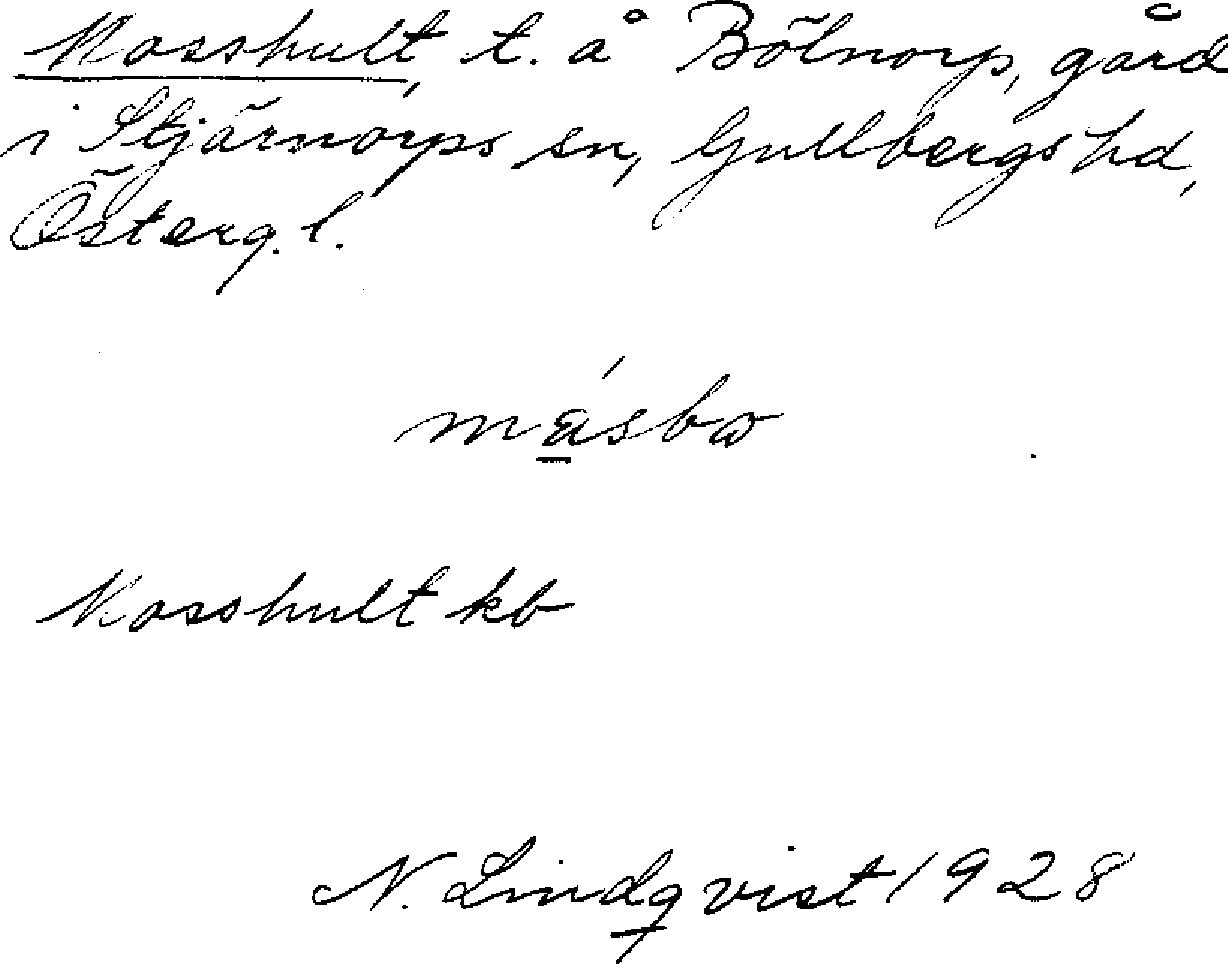 Mosshult, t. å Bölnorp, gård
i Stjärnorps sn, Gullbergs hd,
Österg. l.
Mosshult kb
N. Lindqvist 1928